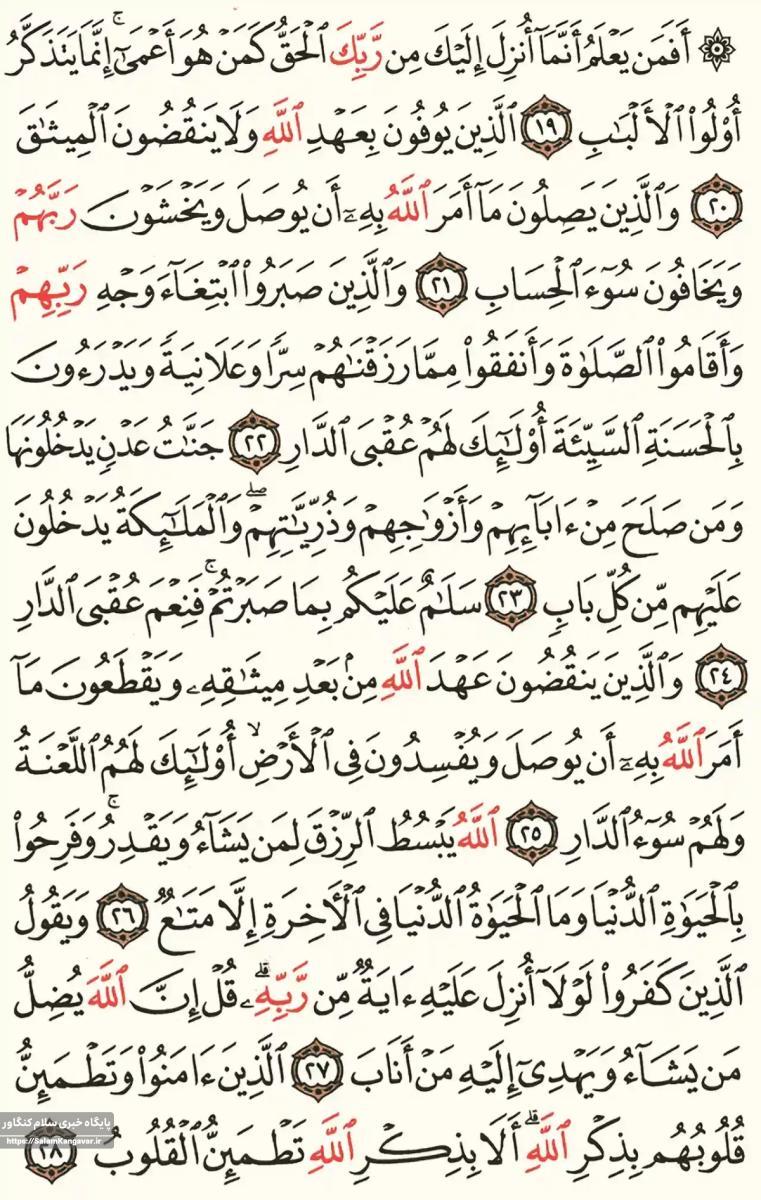 ۞ أَفَمَن يَعْلَمُ أَنَّمَآ أُنزِلَ إِلَيْكَ مِن رَّبِّكَ ٱلْحَقُّ كَمَنْ هُوَ أَعْمَىٰٓ ۚ إِنَّمَا يَتَذَكَّرُ
أُو۟لُوا۟ ٱلْأَلْبَٰبِ ١٩ ٱلَّذِينَ يُوفُونَ بِعَهْدِ ٱللَّهِ وَلَا يَنقُضُونَ ٱلْمِيثَٰقَ
٢٠ وَٱلَّذِينَ يَصِلُونَ مَآ أَمَرَ ٱللَّهُ بِهِۦٓ أَن يُوصَلَ وَيَخْشَوْنَ رَبَّهُمْ
وَيَخَافُونَ سُوٓءَ ٱلْحِسَابِ ٢١ وَٱلَّذِينَ صَبَرُوا۟ ٱبْتِغَآءَ وَجْهِ رَبِّهِمْ
وَأَقَامُوا۟ ٱلصَّلَوٰةَ وَأَنفَقُوا۟ مِمَّا رَزَقْنَٰهُمْ سِرًّا وَعَلَانِيَةً وَيَدْرَءُونَ
بِٱلْحَسَنَةِ ٱلسَّيِّئَةَ أُو۟لَٰٓئِكَ لَهُمْ عُقْبَى ٱلدَّارِ ٢٢ جَنَّٰتُ عَدْنٍ يَدْخُلُونَهَا
وَمَن صَلَحَ مِنْ ءَابَآئِهِمْ وَأَزْوَٰجِهِمْ وَذُرِّيَّٰتِهِمْ ۖ وَٱلْمَلَٰٓئِكَةُ يَدْخُلُونَ
عَلَيْهِم مِّن كُلِّ بَابٍ ٢٣ سَلَٰمٌ عَلَيْكُم بِمَا صَبَرْتُمْ ۚ فَنِعْمَ عُقْبَى ٱلدَّارِ
٢٤ وَٱلَّذِينَ يَنقُضُونَ عَهْدَ ٱللَّهِ مِنۢ بَعْدِ مِيثَٰقِهِۦ وَيَقْطَعُونَ مَآ
أَمَرَ ٱللَّهُ بِهِۦٓ أَن يُوصَلَ وَيُفْسِدُونَ فِى ٱلْأَرْضِ ۙ أُو۟لَٰٓئِكَ لَهُمُ ٱللَّعْنَةُ
وَلَهُمْ سُوٓءُ ٱلدَّارِ ٢٥ ٱللَّهُ يَبْسُطُ ٱلرِّزْقَ لِمَن يَشَآءُ وَيَقْدِرُ ۚ وَفَرِحُوا۟
بِٱلْحَيَوٰةِ ٱلدُّنْيَا وَمَا ٱلْحَيَوٰةُ ٱلدُّنْيَا فِى ٱلْءَاخِرَةِ إِلَّا مَتَٰعٌ ٢٦ وَيَقُولُ
ٱلَّذِينَ كَفَرُوا۟ لَوْلَآ أُنزِلَ عَلَيْهِ ءَايَةٌ مِّن رَّبِّهِۦ ۗ قُلْ إِنَّ ٱللَّهَ يُضِلُّ
مَن يَشَآءُ وَيَهْدِىٓ إِلَيْهِ مَنْ أَنَابَ ٢٧ ٱلَّذِينَ ءَامَنُوا۟ وَتَطْمَئِنُّ
قُلُوبُهُم بِذِكْرِ ٱللَّهِ ۗ أَلَا بِذِكْرِ ٱللَّهِ تَطْمَئِنُّ ٱلْقُلُوبُ ٢٨
پایگاه خبری سلام کنگاور
https://SalamKangavar.ir